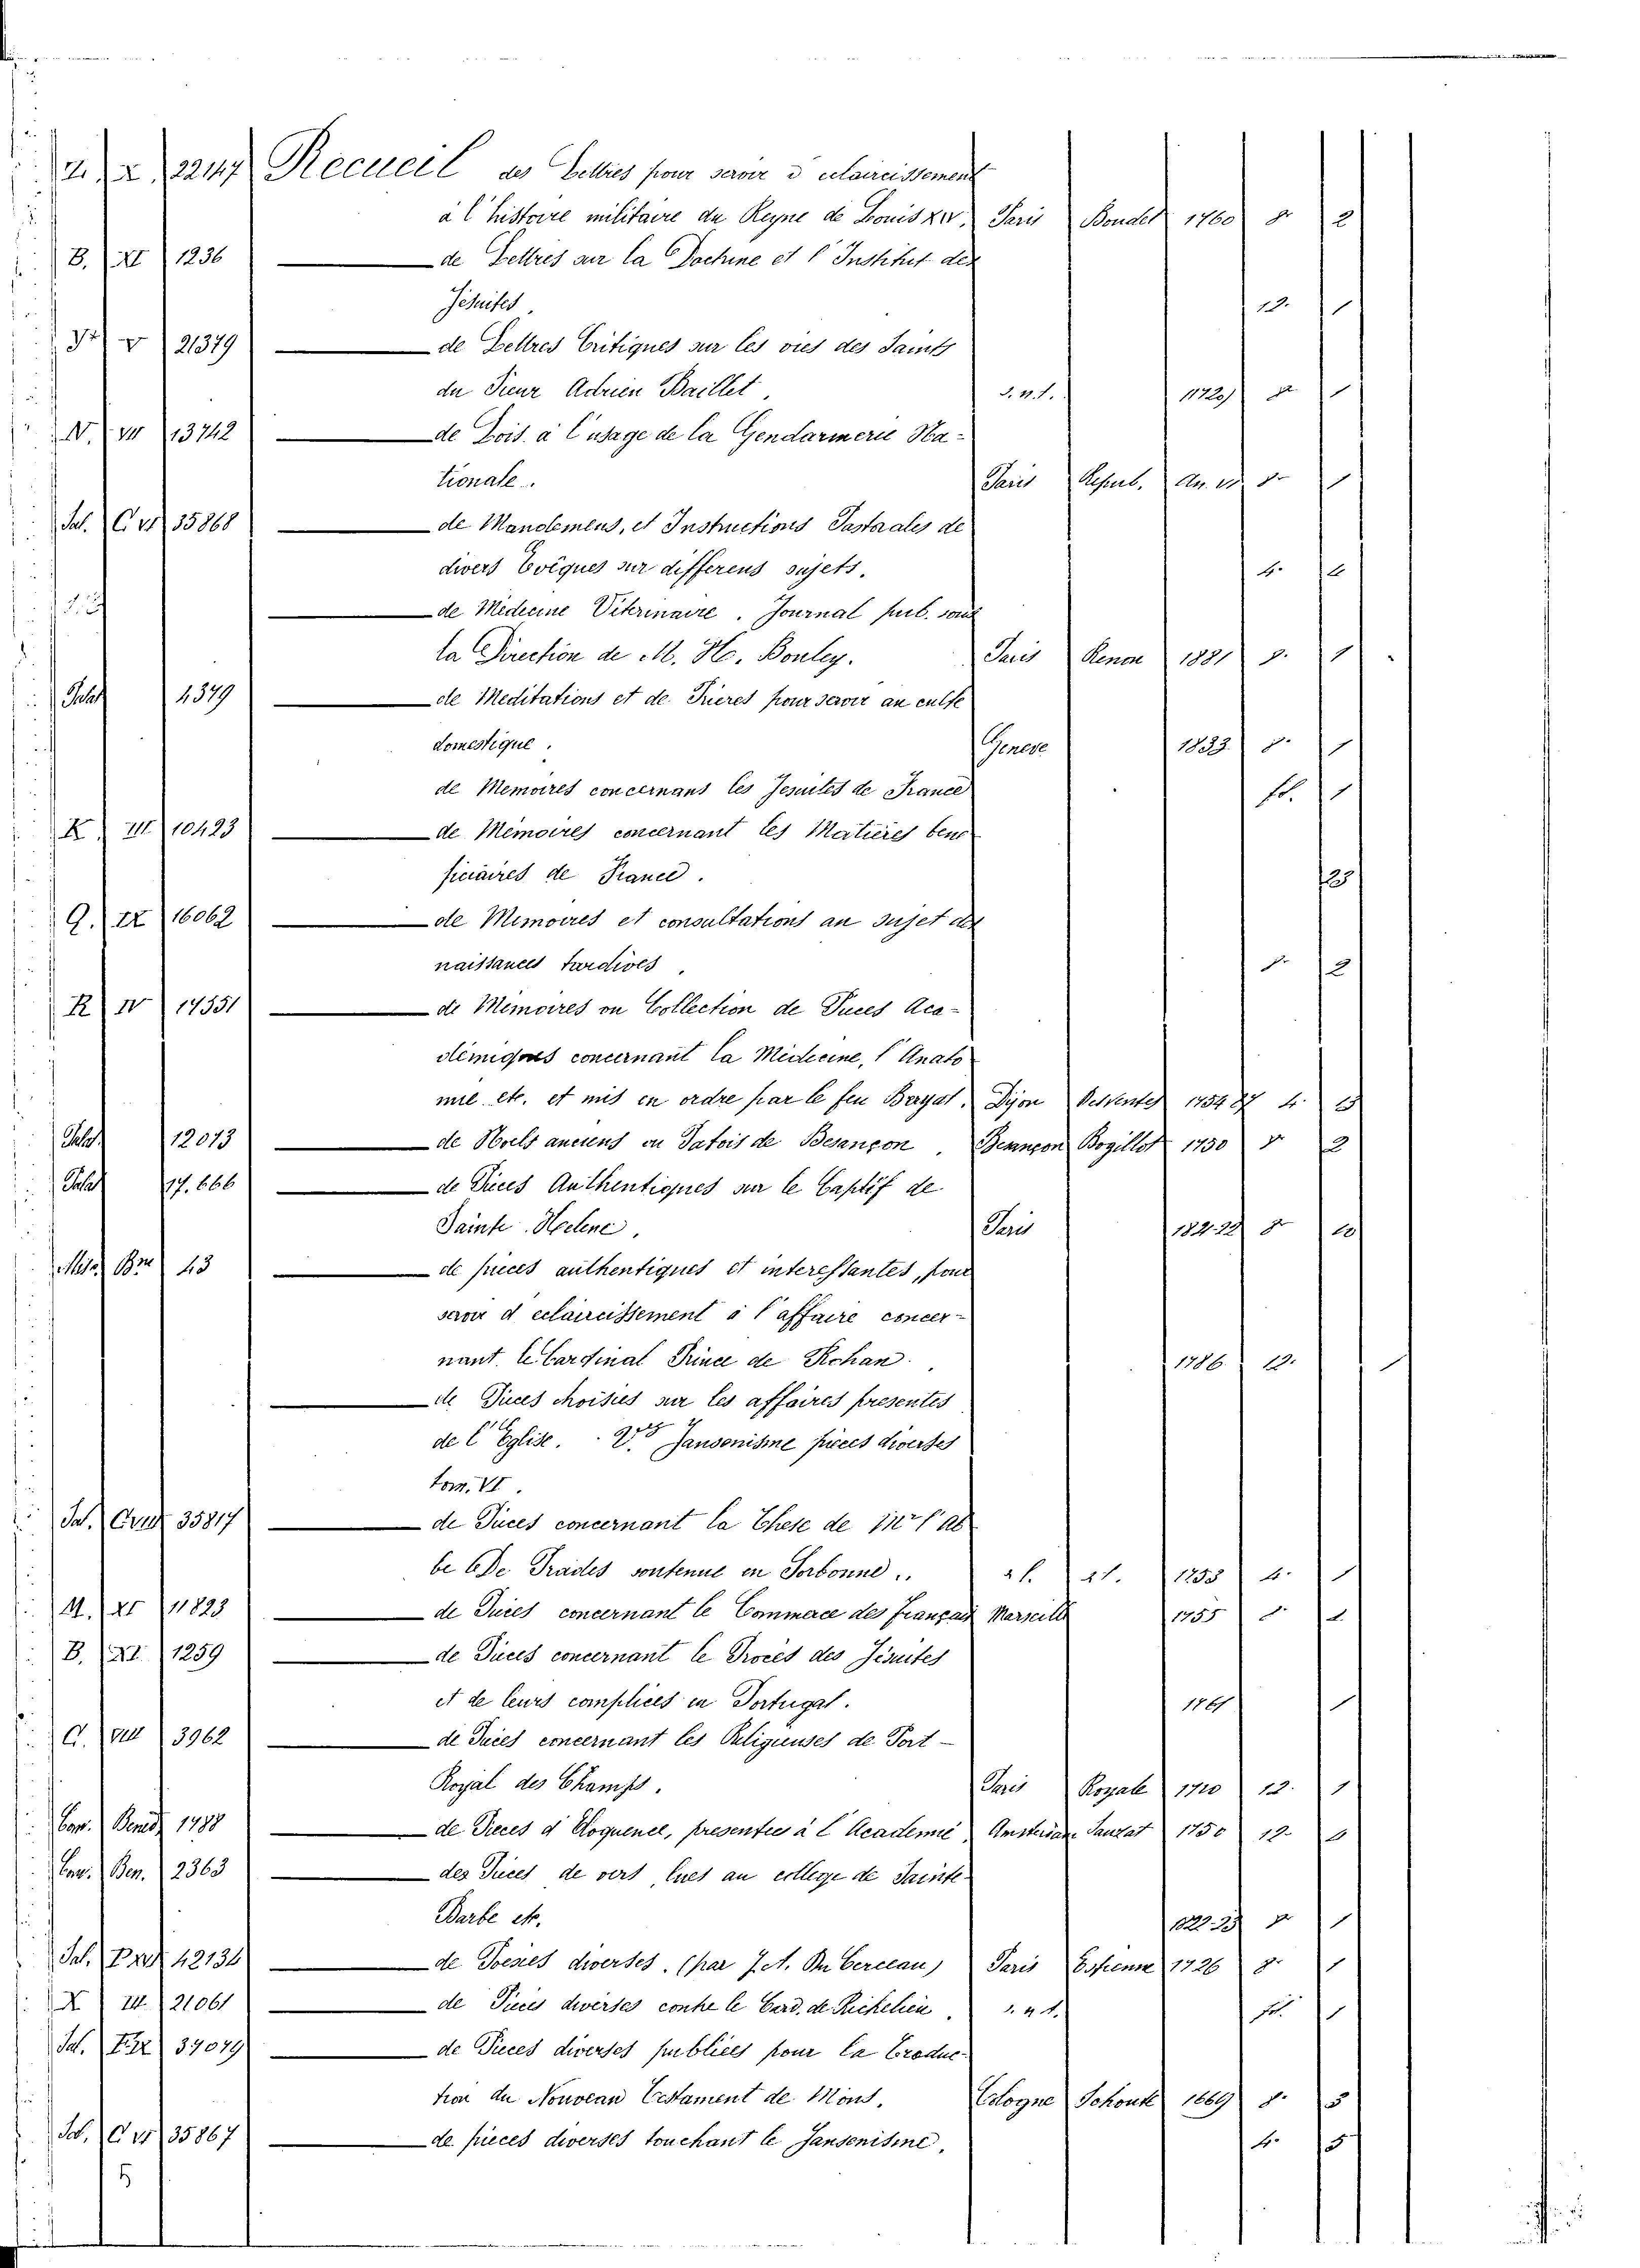 22147 Recueil des Lettres pour servir d'eclaircissement
à l'histoire militaire du Regne de Louis XIV. Paris Boudet 1760 8º 2
B. XI 1236 — de Lettres sur la Doctrine et l'Institut des
Jesuites. 12. 1
V 21379 — de Lettres Critiques sur les vies des Saints
du Sieur Adrien Baillet. s.n.l. 1720 1
N. VII 13742 — de Lois à l'usage de la Gendarmerie Na-
tionale. Paris Repub. An. 8º 1
Sal. C VI 35868 — de Mandemens, et Instructions Pastorales de
divers Evêques sur differens sujets. 4.
— de Medecine Véterinaire. Journal pub. sous
la Direction de M. H. Bouley. Paris Renou 1881 8. 1
4379 — de Meditations et de Prieres pour servir au culte
domestique. Geneve 1833 8. 1
de Memoires concernans les Jesuites de France fol. 1
K III 10423 — de Mémoires concernant les Matières bene
ficiaires de France.
G. IX 16062 — de Memoires et consultations au sujet des
naissances tardives. 2
R IV 14351 — de Memoires ou Collection de Pieces Aca-
démiques concernant la Médecine, l'Anato
mie etc. et mis en ordre par le feu Beryat. Dijon Desventes 1754 4.
12073 — de Noels anciens ou Patois de Besançon. Besançon Bogillot 1750 8 2
17.666 — de Pieces Authentiques sur le Captif de
Sainte Helene. Paris 8º 10
43 — de pieces authentiques et interessantes, pour
servir d'eclaircissement à l'affaire concer-
nant le Cardinal Prince de Rohan. 1786 12. 1
— de Pieces choisies sur les affaires presentes
de l'Eglise. Jansenisme pieces diverses
tom. VI.
Sal. 35817 — de Pieces concernant la These de Mr l'Ab
be De Prades soutenue en Sorbonne. 4. 1
M. XI 11823 — de Pieces concernant le Commerce des Français Marseille 1755
B. XI 1259 — de Pieces concernant le Procès des Jésuites
et de leurs complices en Portugal. 1
C. VIII 3962 — de Pieces concernant les Religieuses de Port-
Royal des Champs. Paris Royale 1710 12. 1
Ben. 1488 — de Pieces d'Eloquence, presentées à l'Academie Sauzat 1750 12
Ben. 2363 — des Pieces de vers lues au college de Sainte
Barbe etc. 1
Sal. 42134 — de Poesies diverses. (par J. A. Du Cerceau) Paris Estienne 1726 8 1
X III 21061 — de Pieces diverses contre le Card. de Richelieu. fol. 1
Sal. 37079 — de Pieces diverses publiées pour la Traduc-
tion du Nouveau Testament de Mons. Cologne Schoute 1669 8. 5
C VI 35867 — de pieces diverses touchant le Jansenisme. 4. 5
5